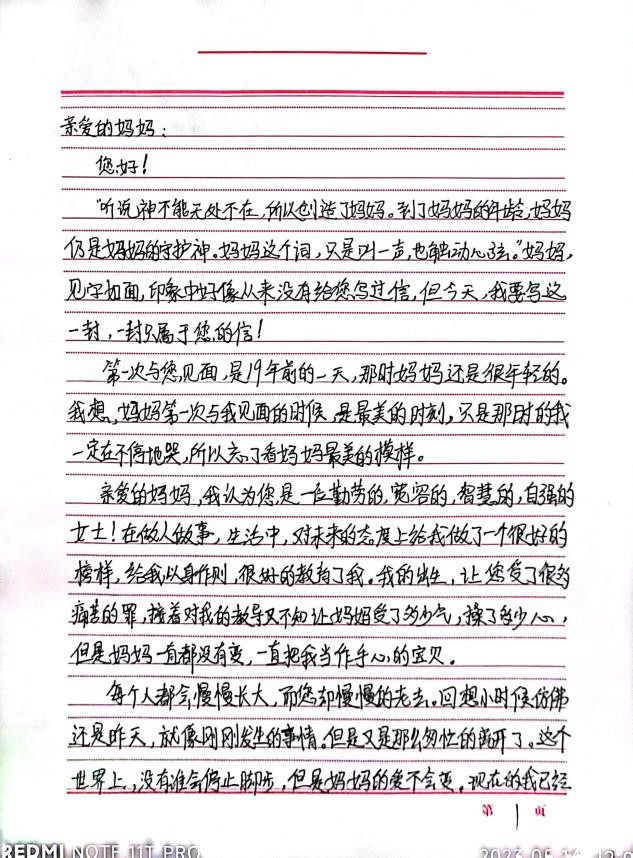 亲爱的妈妈：
您好！
"听说,神不能无处不在,所以创造了妈妈。到了妈妈的年龄,妈妈
仍是妈妈的守护神。妈妈这个词,只是叫一声,也触动心弦。"妈妈,
见字如面,印象中好像从来没有给您写过信,但今天,我要写这
一封,一封只属于您的信！
第一次与您见面,是19年前的一天,那时妈妈还是很年轻的。
我想,妈妈第一次与我见面的时候,是最美的时刻,只是那时的我
一定在不停地哭,所以忘了看妈妈最美的模样。
亲爱的妈妈,我认为您是一位勤劳的,宽容的,智慧的,自强的
女士！在做人做事,生活中,对未来的态度上给我做了一个很好的
榜样,给我以身作则,很好的教育了我。我的出生,让您受了很多
痛苦的罪,接着对我的教导又不知让妈妈受了多少气,操了多少心,
但是妈妈一直都没有变,一直把我当作手心的宝贝。
每个人都会慢慢长大,而您却慢慢的老去。回想小时候仿佛
还是昨天,就像刚刚发生的事情。但是又是那么匆忙的离开了。这个
世界上,没有谁会停止脚步,但是妈妈的爱不会变。现在的我已经
第 1 页
REDMI NOTE 11T PRO